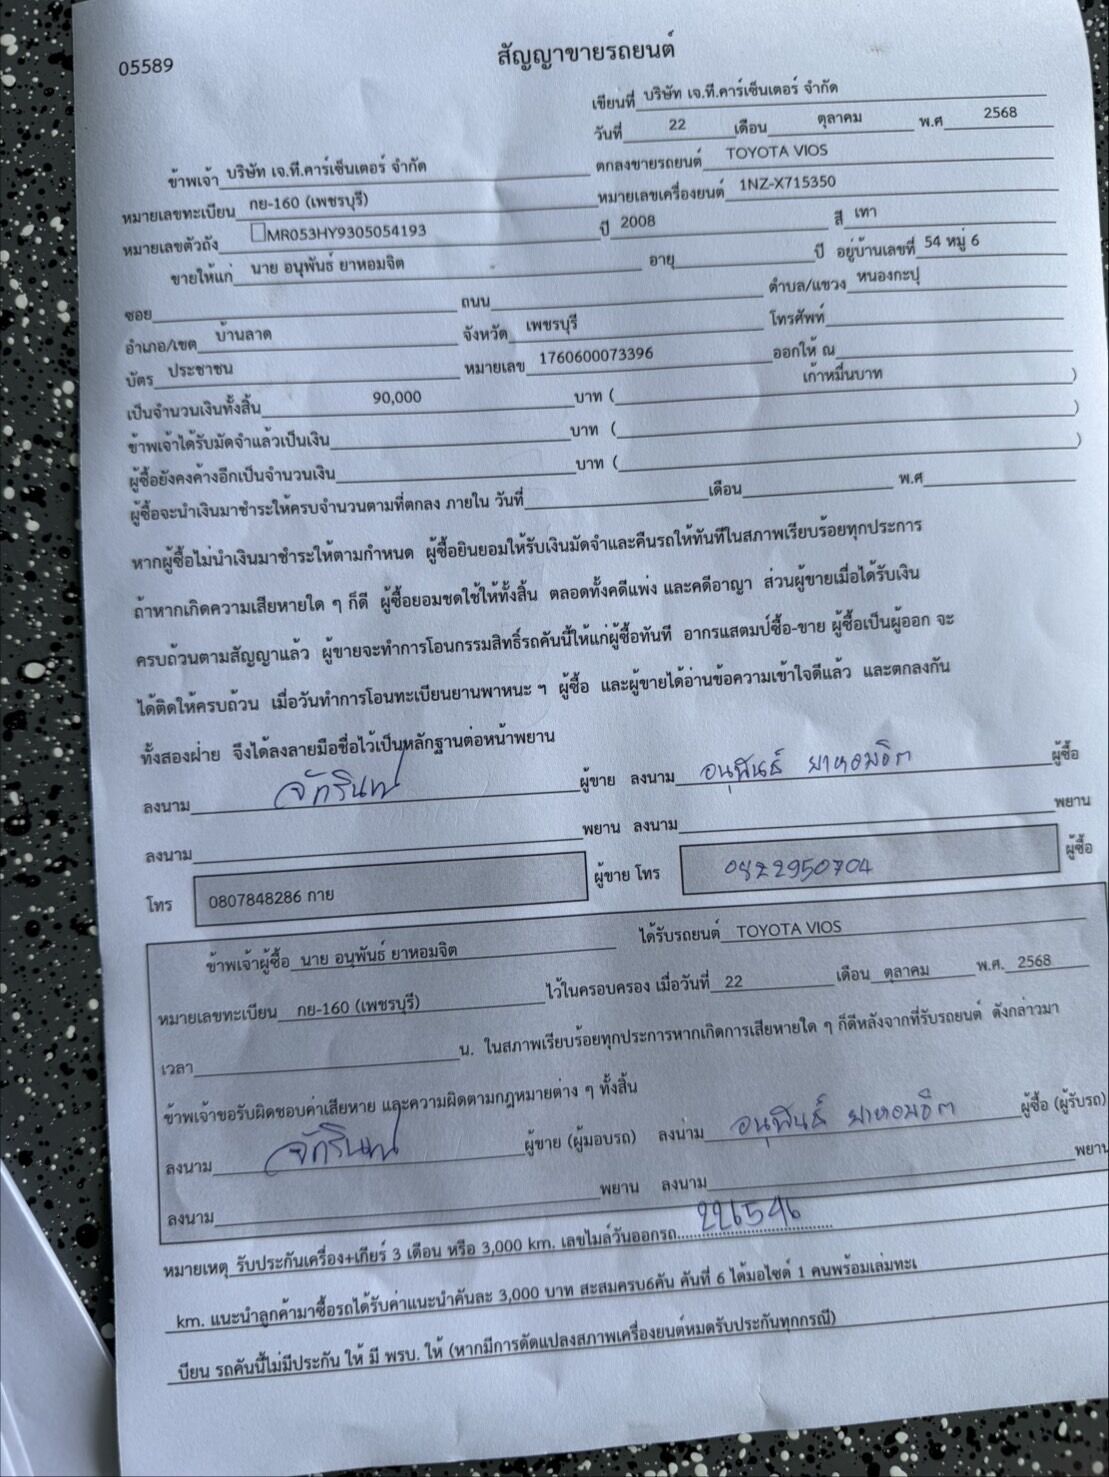 05589
สัญญาขายรถยนต์
เขียนที่ บริษัท เจ.ที.คาร์เซ็นเตอร์ จำกัด
วันที่ 22 เดือน ตุลาคม พ.ศ 2568
ข้าพเจ้า บริษัท เจ.ที.คาร์เซ็นเตอร์ จำกัด ตกลงขายรถยนต์ TOYOTA VIOS
หมายเลขทะเบียน กย-160 (เพชรบุรี) หมายเลขเครื่องยนต์ 1NZ-X715350
หมายเลขตัวถัง MR053HY9305054193 ปี 2008 สี เทา
ขายให้แก่ นาย อนุพันธ์ ยาหอมจิต อายุ ปี อยู่บ้านเลขที่ 54 หมู่ 6
ซอย ถนน ตำบล/แขวง หนองกะปุ
อำเภอ/เขต บ้านลาด จังหวัด เพชรบุรี โทรศัพท์
บัตร ประชาชน หมายเลข 1760600073396 ออกให้ ณ
เป็นจำนวนเงินทั้งสิ้น 90,000 บาท ( เก้าหมื่นบาท )
ข้าพเจ้าได้รับมัดจำแล้วเป็นเงิน บาท ( )
ผู้ซื้อยังคงค้างอีกเป็นจำนวนเงิน บาท ( )
ผู้ซื้อจะนำเงินมาชำระให้ครบจำนวนตามที่ตกลง ภายใน วันที่ เดือน พ.ศ
หากผู้ซื้อไม่นำเงินมาชำระให้ตามกำหนด ผู้ซื้อยินยอมให้รับเงินมัดจำและคืนรถให้ทันทีในสภาพเรียบร้อยทุกประการ
ถ้าหากเกิดความเสียหายใด ๆ ก็ดี ผู้ซื้อยอมชดใช้ให้ทั้งสิ้น ตลอดทั้งคดีแพ่ง และคดีอาญา ส่วนผู้ขายเมื่อได้รับเงิน
ครบถ้วนตามสัญญาแล้ว ผู้ขายจะทำการโอนกรรมสิทธิ์รถคันนี้ให้แก่ผู้ซื้อทันที อากรแสตมป์ซื้อ-ขาย ผู้ซื้อเป็นผู้ออก จะ
ได้ติดให้ครบถ้วน เมื่อวันทำการโอนทะเบียนยานพาหนะ ฯ ผู้ซื้อ และผู้ขายได้อ่านข้อความเข้าใจดีแล้ว และตกลงกัน
ทั้งสองฝ่าย จึงได้ลงลายมือชื่อไว้เป็นหลักฐานต่อหน้าพยาน
ลงนาม ผู้ขาย ลงนาม อนุพันธ์ ยาหอมจิต ผู้ซื้อ
ลงนาม พยาน ลงนาม พยาน
โทร 0807848286 กาย ผู้ขาย โทร 0822950704 ผู้ซื้อ
ข้าพเจ้าผู้ซื้อ นาย อนุพันธ์ ยาหอมจิต ได้รับรถยนต์ TOYOTA VIOS
หมายเลขทะเบียน กย-160 (เพชรบุรี) ไว้ในครอบครอง เมื่อวันที่ 22 เดือน ตุลาคม พ.ศ. 2568
เวลา น. ในสภาพเรียบร้อยทุกประการหากเกิดการเสียหายใด ๆ ก็ดีหลังจากที่รับรถยนต์ ดังกล่าวมา
ข้าพเจ้าขอรับผิดชอบค่าเสียหาย และความผิดตามกฎหมายต่าง ๆ ทั้งสิ้น
ลงนาม ผู้ขาย (ผู้มอบรถ) ลงนาม อนุพันธ์ ยาหอมจิต ผู้ซื้อ (ผู้รับรถ)
ลงนาม พยาน ลงนาม พยาน
หมายเหตุ รับประกันเครื่อง+เกียร์ 3 เดือน หรือ 3,000 km. เลขไมล์วันออกรถ 226546
km. แนะนำลูกค้ามาซื้อรถได้รับค่าแนะนำคันละ 3,000 บาท สะสมครบ6คัน คันที่ 6 ได้มอไซด์ 1 คนพร้อมเล่มทะเ
บียน รถคันนี้ไม่มีประกัน ให้ มี พรบ. ให้ (หากมีการดัดแปลงสภาพเครื่องยนต์หมดรับประกันทุกกรณี)